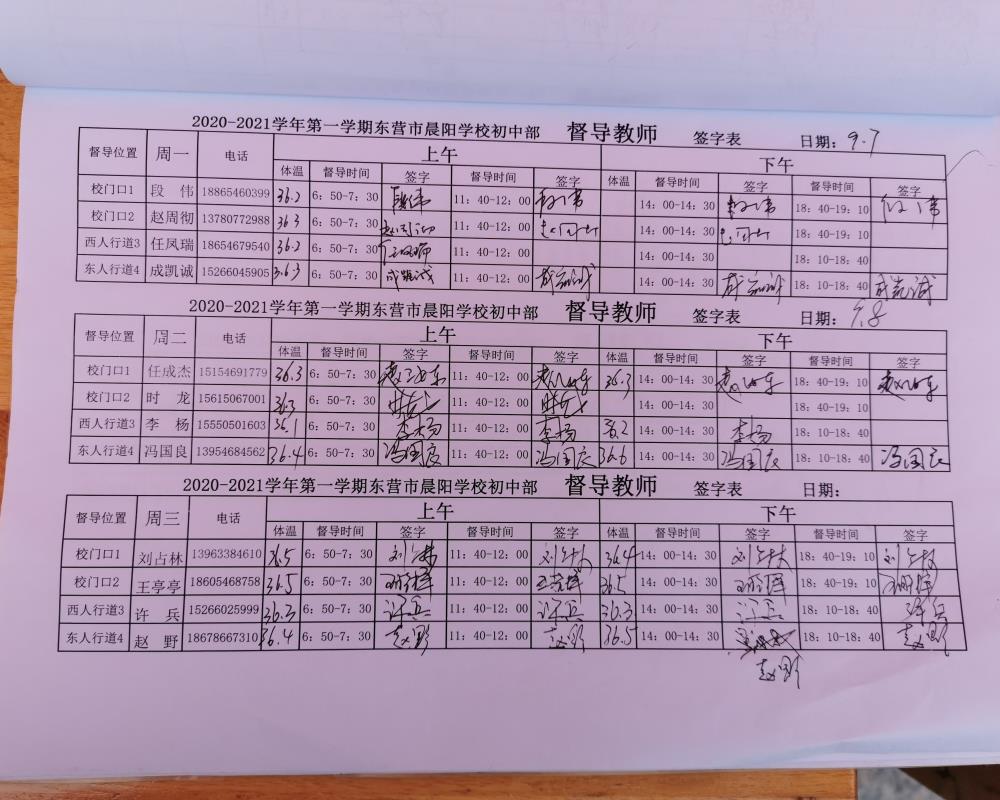 2020-2021学年第一学期东营市晨阳学校初中部 督导教师 签字表 日期: 9.7
督导位置 周一 电话 上午 下午
体温 督导时间 签字 督导时间 签字 体温 督导时间 签字 督导时间 签字
校门口1 段 伟 18865460399 36.2 6:50-7:30 段伟 11:40-12:00 14:00-14:30 18:40-19:10
校门口2 赵周彻 13780772988 36.3 6:50-7:30 11:40-12:00 14:00-14:30 18:40-19:10
西人行道3 任凤瑞 18654679540 36.2 6:50-7:30 11:40-12:00 14:00-14:30 18:10-18:40
东人行道4 成凯诚 15266045905 36.3 6:50-7:30 成凯诚 11:40-12:00 成凯诚 14:00-14:30 成凯诚 18:10-18:40 成凯诚
2020-2021学年第一学期东营市晨阳学校初中部 督导教师 签字表 日期: 9.8
督导位置 周二 电话 上午 下午
体温 督导时间 签字 督导时间 签字 体温 督导时间 签字 督导时间 签字
校门口1 任成杰 15154691779 36.3 6:50-7:30 11:40-12:00 36.3 14:00-14:30 18:40-19:10
校门口2 时 龙 15615067001 36.3 6:50-7:30 时龙 11:40-12:00 时龙 14:00-14:30 18:40-19:10
西人行道3 李 杨 15550501603 36.1 6:50-7:30 李杨 11:40-12:00 李杨 36.2 14:00-14:30 李杨 18:10-18:40
东人行道4 冯国良 13954684562 36.4 6:50-7:30 冯国良 11:40-12:00 冯国良 36.6 14:00-14:30 冯国良 18:10-18:40 冯国良
2020-2021学年第一学期东营市晨阳学校初中部 督导教师 签字表 日期:
督导位置 周三 电话 上午 下午
体温 督导时间 签字 督导时间 签字 体温 督导时间 签字 督导时间 签字
校门口1 刘占林 13963384610 36.5 6:50-7:30 刘占林 11:40-12:00 刘占林 36.4 14:00-14:30 刘占林 18:40-19:10 刘占林
校门口2 王亭亭 18605468758 36.5 6:50-7:30 11:40-12:00 36.5 14:00-14:30 18:40-19:10
西人行道3 许 兵 15266025999 36.3 6:50-7:30 许兵 11:40-12:00 许兵 36.3 14:00-14:30 许兵 18:10-18:40 许兵
东人行道4 赵 野 18678667310 36.4 6:50-7:30 赵野 11:40-12:00 赵野 36.5 14:00-14:30 18:10-18:40 赵野
赵野